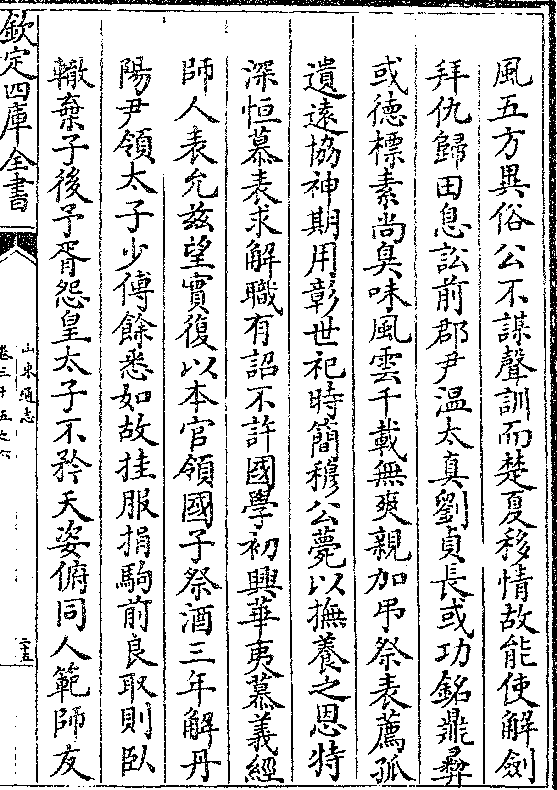 風五方異俗公不謀聲訓而楚夏移情故能使解劍
拜仇歸田息訟前郡尹溫太真劉貞長或功銘鼎彞
或德標素尚臭味風雲千載無爽親加弔祭表薦孤
遺遠協神期用彰世祀時簡穆公薨以撫養之恩特
深恒慕表求解職有詔不許國學初興華夷慕義經
師人表允兹望實復以本官領國子祭酒三年解丹
陽尹領太子少傅餘悉如故挂服捐駒前良取則臥
轍棄子後予胥怨皇太子不矜天姿俯同人範師友
欽定四庫全書
山東通志
卷三十五之六
二五